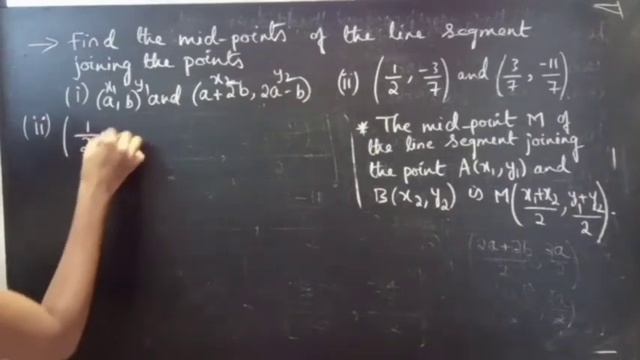 → Find the mid-points of the line segment
joining the points
(i) (a, b) and (a+2b, 2a-b)
x₁ y₁ x₂ y₂
(ii) (1/2, -3/7) and (3/7, -11/7)
(ii) (1/2
* The mid-point M of
the line segment joining
the point A(x₁, y₁) and
B(x₂, y₂) is M((x₁+x₂)/2, (y₁+y₂)/2).
((2a+2b)/2, 2a/2)